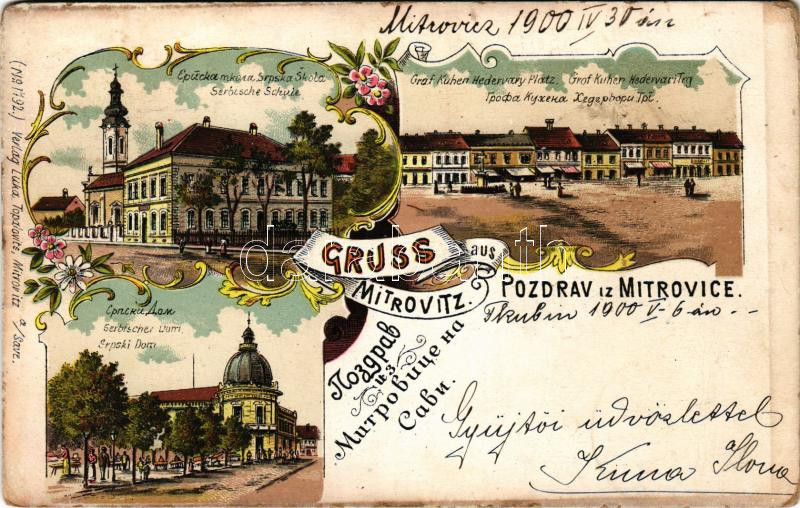 Mitrovicz 1900 IV 30 án
Српска школа Srpska Škola
Serbische Schule
Graf Kuhen Hedervary Platz. Grof Kuhen Hedervari Trg
Грофа Кухена Хедервари Трг.
GRUSS
aus
MITROVITZ.
POZDRAV IZ MITROVICE.
1900 V-6 án.--
Поздрав
из
Митровице на
Сави.
Српски Дом
Serbischer Dom
Srpski Dom
Gyűjtői üdvözlettel
Kuna Ilona
(No 1792.) Verlag Luka Topalovits, Mitrovitz a/Save.